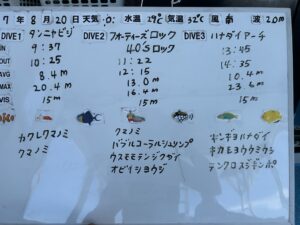 7年8月20日 天気 水温29℃ 気温32℃ 風南 波2.0m
DIVE1 タンニャビジ DIVE2 フォーティーズロック DIVE3 ハナダイアーチ
40'Sロック
IN 9:37 11:22 13:45
OUT 10:25 12:15 14:35
AVG 8.4m 13.0m 10.4m
MAX 20.4m 16.4m 23.6m
VIS 15m 15m 15m
カクレクマノミ クマノミ キンギョハナダイ
クマノミ バブルコーラルシュリンプ ホカケヨウウミウシ
ウスモモテンジクダイ テンクロスジギンポ
オビイシヨウジ